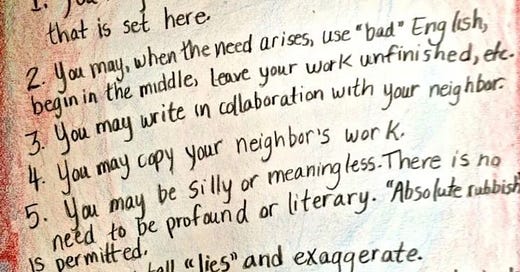 that is set here.
2. You may, when the need arises, use "bad" English,
begin in the middle, leave your work unfinished, etc.
3. You may write in collaboration with your neighbor.
4. You may copy your neighbor's work.
5. You may be silly or meaningless. There is no
need to be profound or literary. "Absolute rubbish
is permitted.
"lies" and exaggerate.